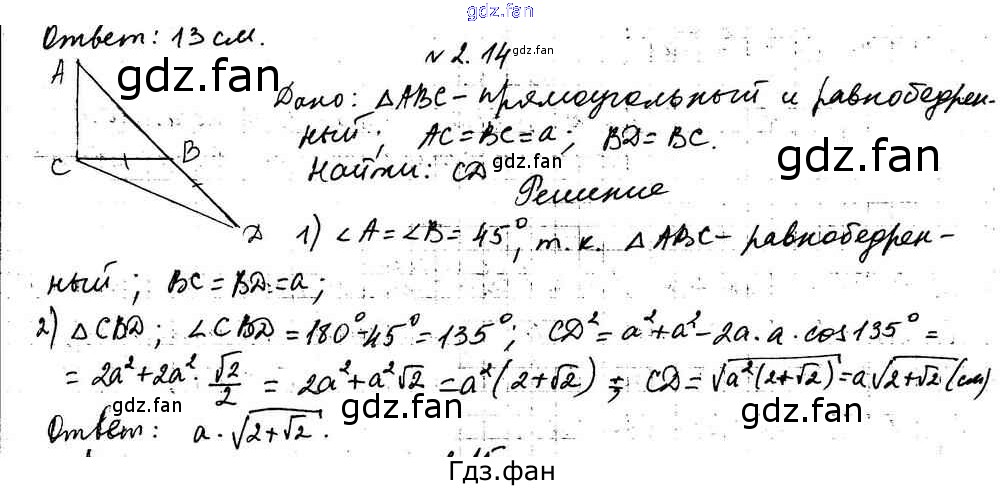 gdz.fan
Ответ: 13 см.
№ 2.14 gdz.fan
A gdz.fan
Дано: △ABC - прямоугольный и равнобедрен-
ный; AC = BC = a; BD = BC. gdz.fan
C B
Найти: CD
Решение
D 1) ∠A = ∠B = 45°, т.к. △ABC - равнобедрен-
ный; BC = BD = a;
2) △CBD; ∠CBD = 180° - 45° = 135°; CD² = a² + a² - 2a · a · cos 135° =
= 2a² + 2a² · √2/2 = 2a² + a²√2 = a²(2+√2); CD = √a²(2+√2) = a√2+√2 (см)
gdz.fan gdz.fan gdz.fan
Ответ: a · √2+√2.
Гдз.фан